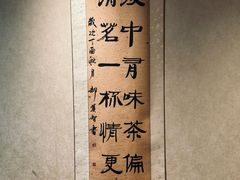 淡中有味茶偏
清茗一杯情更
歲次丁酉秋月
書